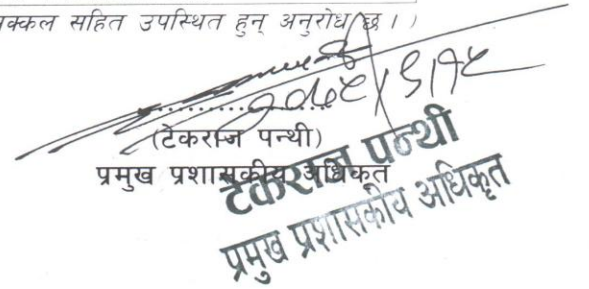 क्कल सहित उपस्थित हुन् अनुरोध छ।)
(टेकराज पन्थी)
प्रमुख प्रशासकीय अधिकृत
टेकराज पन्थी
प्रमुख प्रशासकीय अधिकृत